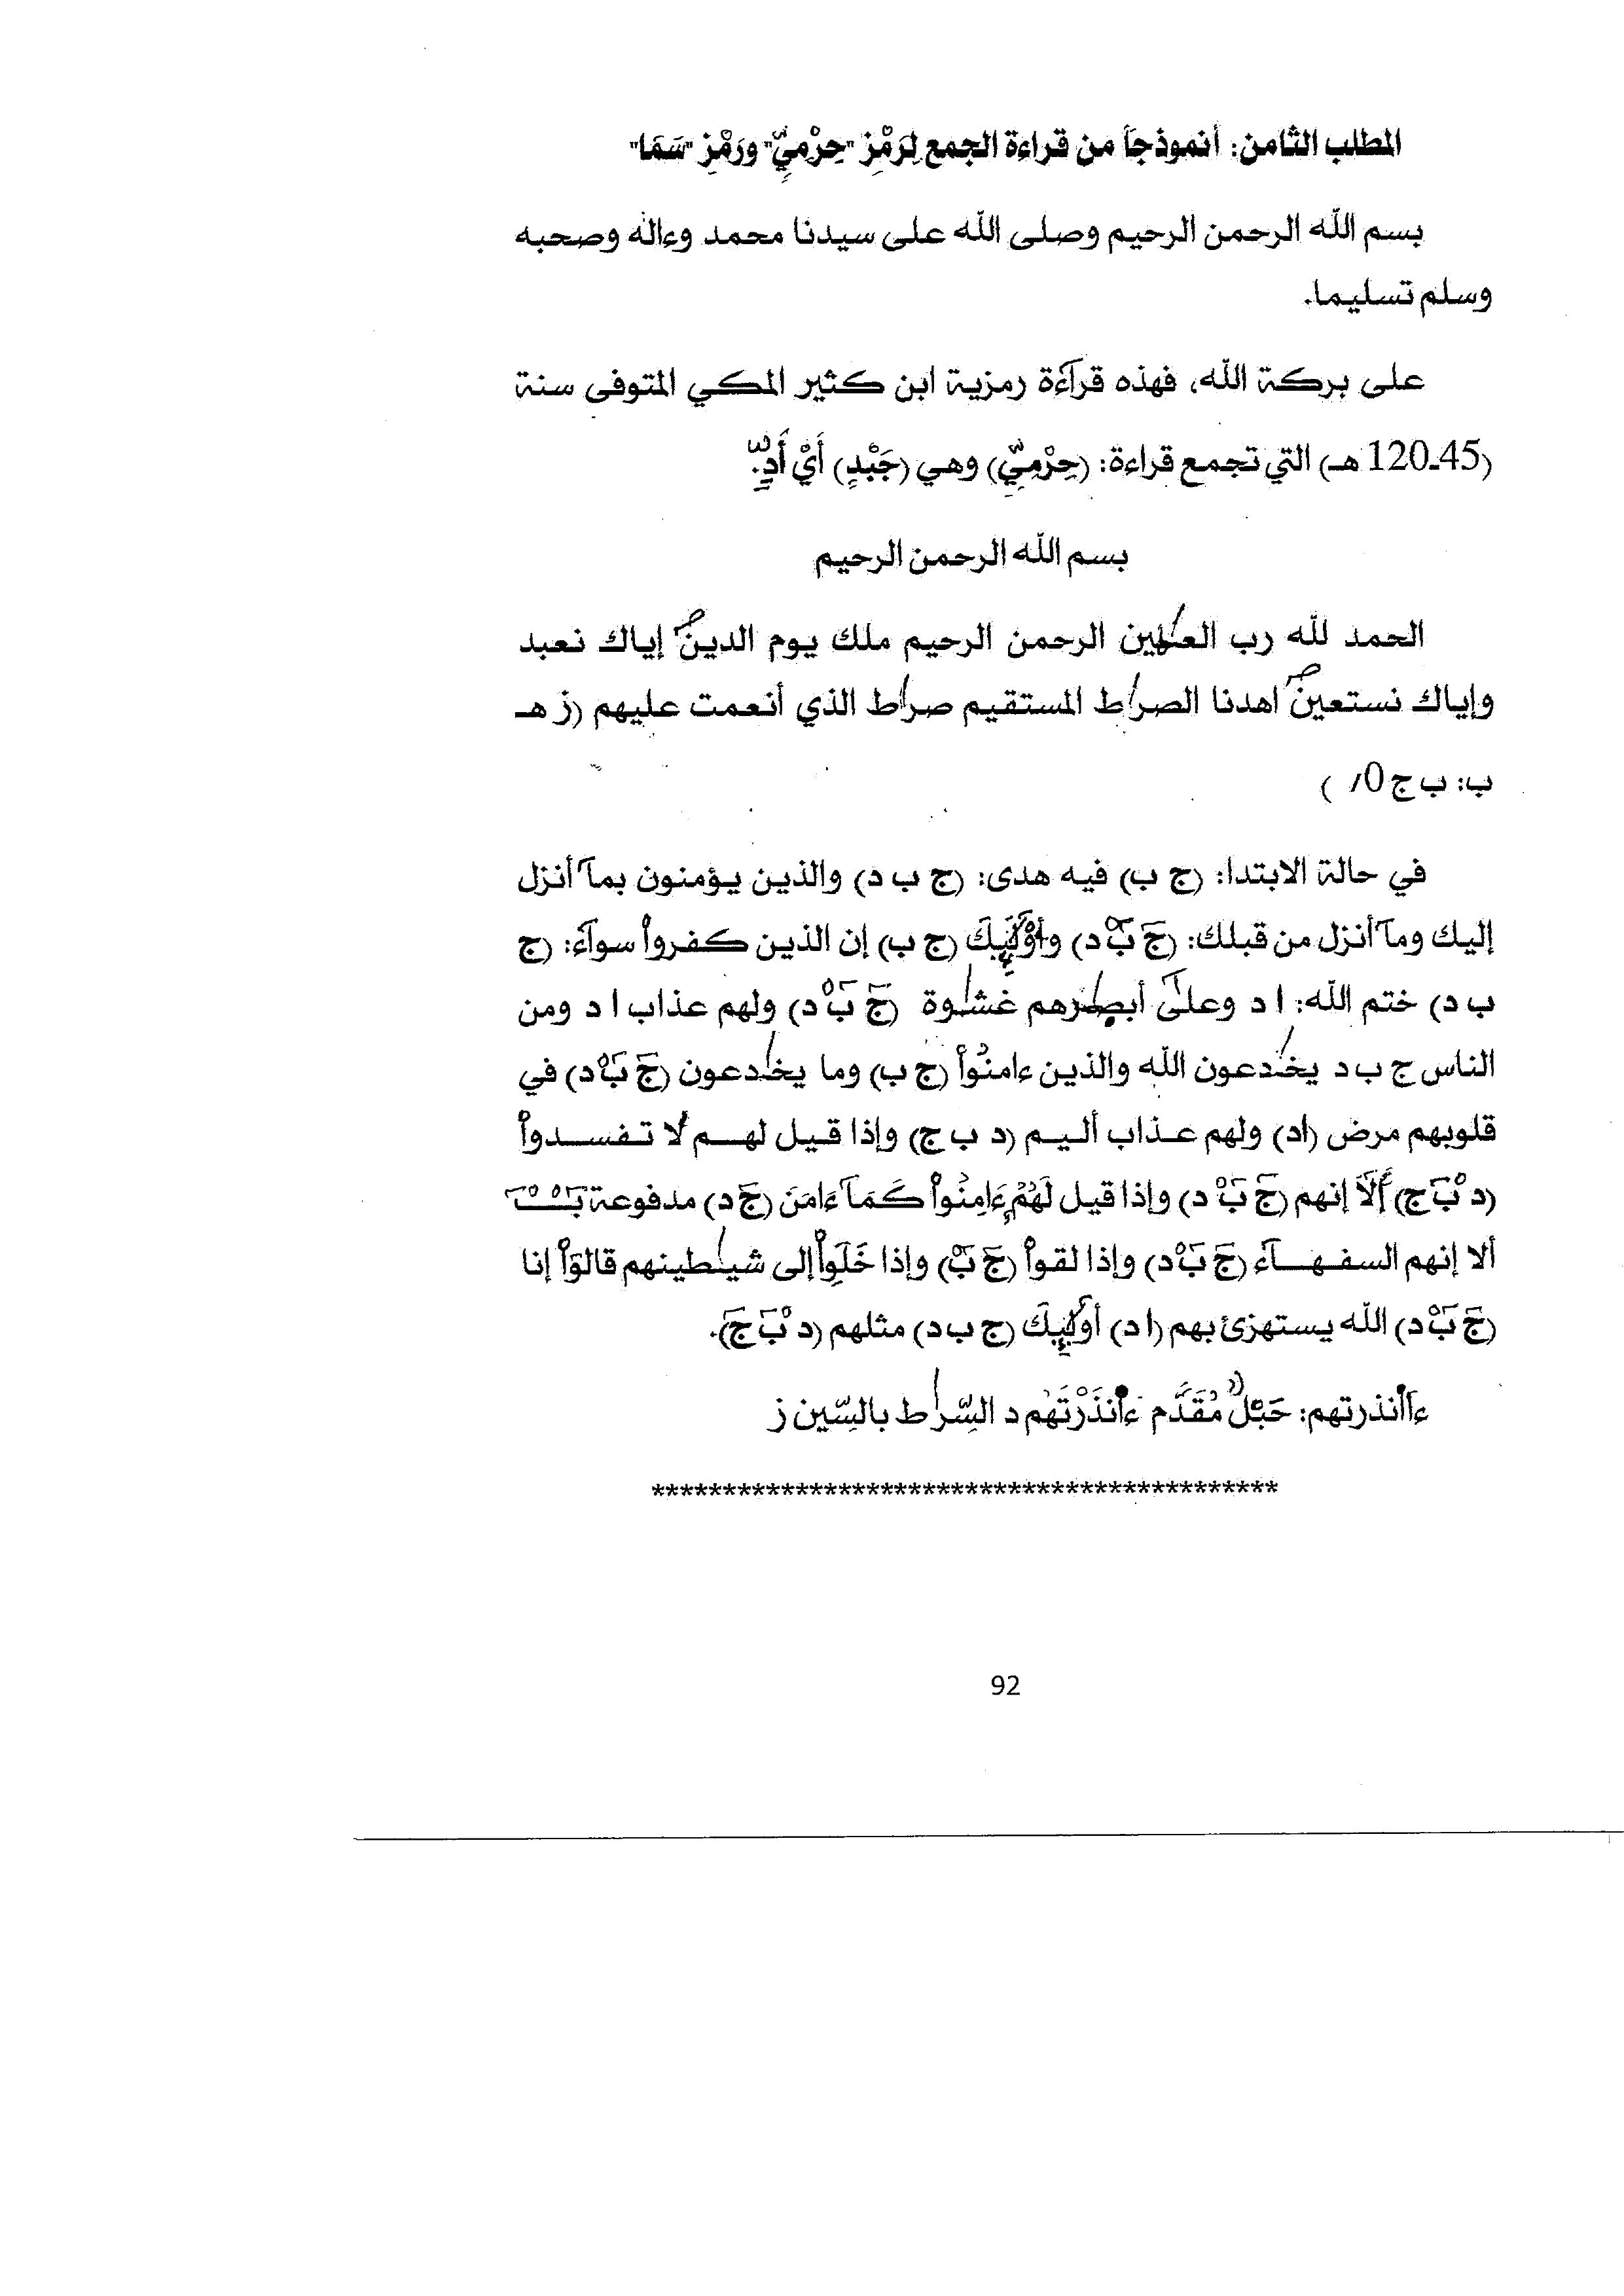 المطلب الثامن: أنموذجاً من قراءة الجمع لِرَمْزِ "حِرْمِيٌّ" ورَمْزِ "سَمَا"
بسم الله الرحمن الرحيم وصلى الله على سيدنا محمد وءاله وصحبه
وسلم تسليما.
على بركة الله، فهذه قرآءة رمزية ابن كثير المكي المتوفى سنة
(45-120 هـ) التي تجمع قراءة: (حِرْمِيٌّ) وهي (جَبْدٍ) أَيْ أَدٍ.
بسم الله الرحمن الرحيم
الحمد لله رب العـٰلمين الرحمن الرحيم ملك يوم الدين إياك نعبد
وإياك نستعين اهدنا الصرٰط المستقيم صرٰط الذي أنعمت عليهم (ز هـ
ب: ب ج 0/ )
في حالة الابتدا: (ج ب) فيه هدى: (ج ب د) والذين يؤمنون بمآ أنزل
إليك ومآ أنزل من قبلك: (جَ بَْ د) وأوْلَٰٓئِكَ (ج ب) إن الذين كفرواْ سوآء: (ج
ب د) ختم الله: ا د وعلىٰٓ أبصٰرهم غشٰوة (جَ بَْ د) ولهم عذاب ا د ومن
الناس ج ب د يخٰدعون الله والذين ءامنُواْ (ج ب) وما يخٰدعون (جَ بَْ د) في
قلوبهم مرض (اد) ولهم عذاب أليم (د ب ج) وإذا قيل لهم لا تفسدواْ
(د بَْ ج) أَلَآ إنهم (جَ بَْ د) وإذا قيل لَهُمُۥٓ ءَامِنُواْ كَمَآ ءَامَنَ (جَ د) مدفوعة بَْ
ألا إنهم السفهآء (جَ بَْ د) وإذا لقواْ (جَ بَْ) وإذا خَلَوِاْ إلى شيٰطينهم قالوٓاْ إنا
(جَ بَْ د) الله يستهزئ بهم (ا د) أوْلَٰٓئِكَ (ج ب د) مثلهم (د بَْ جَ).
ءاأنذرتهم: حَبْلٌ مُقَدَّم ءأنذَرْتَهُم د السِّرٰط بالسِّين ز
*******************************************
92